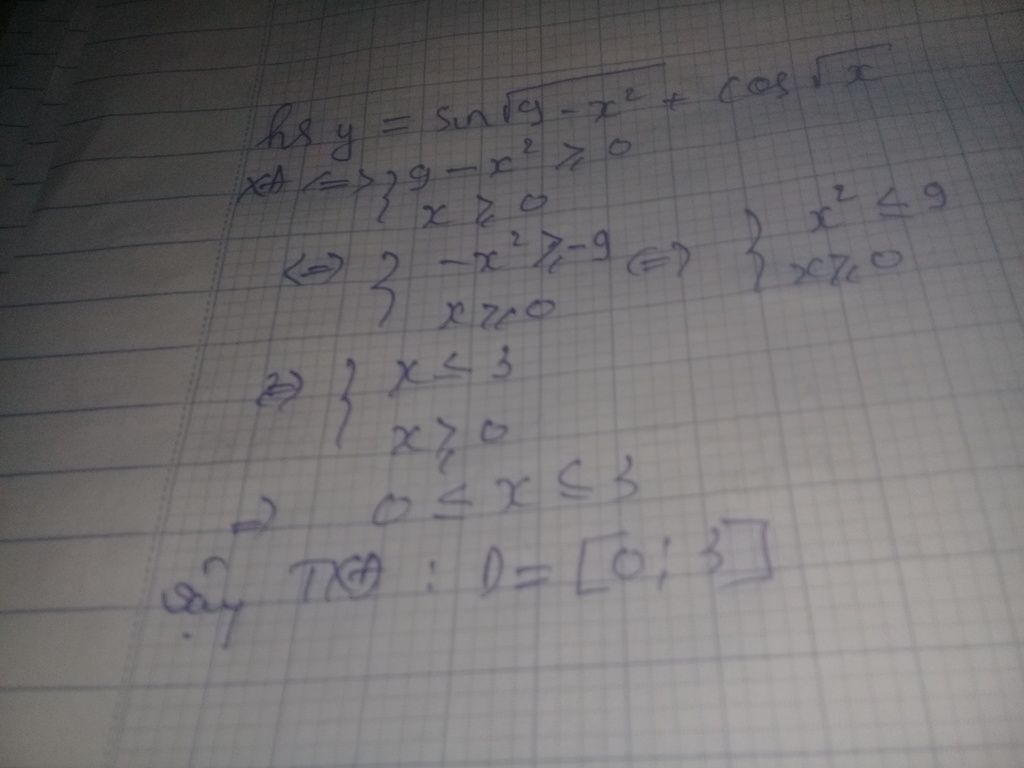 hs y = sin√9 - x² + cos √x
XĐ <=> { 9 - x² ⩾ 0
x ⩾ 0
<=> { -x² ⩾ -9 <=> { x² ≤ 9
x ⩾ 0 x ⩾ 0
<=> { x ≤ 3
x ⩾ 0
=> 0 ≤ x ≤ 3
Vậy TXĐ : D = [0; 3]